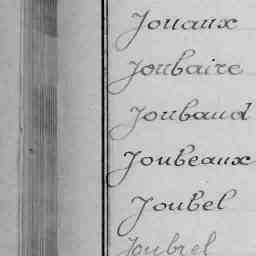 Jouaux
Joubaire
Joubaud
Joubeaux
Joubel
Joubrel